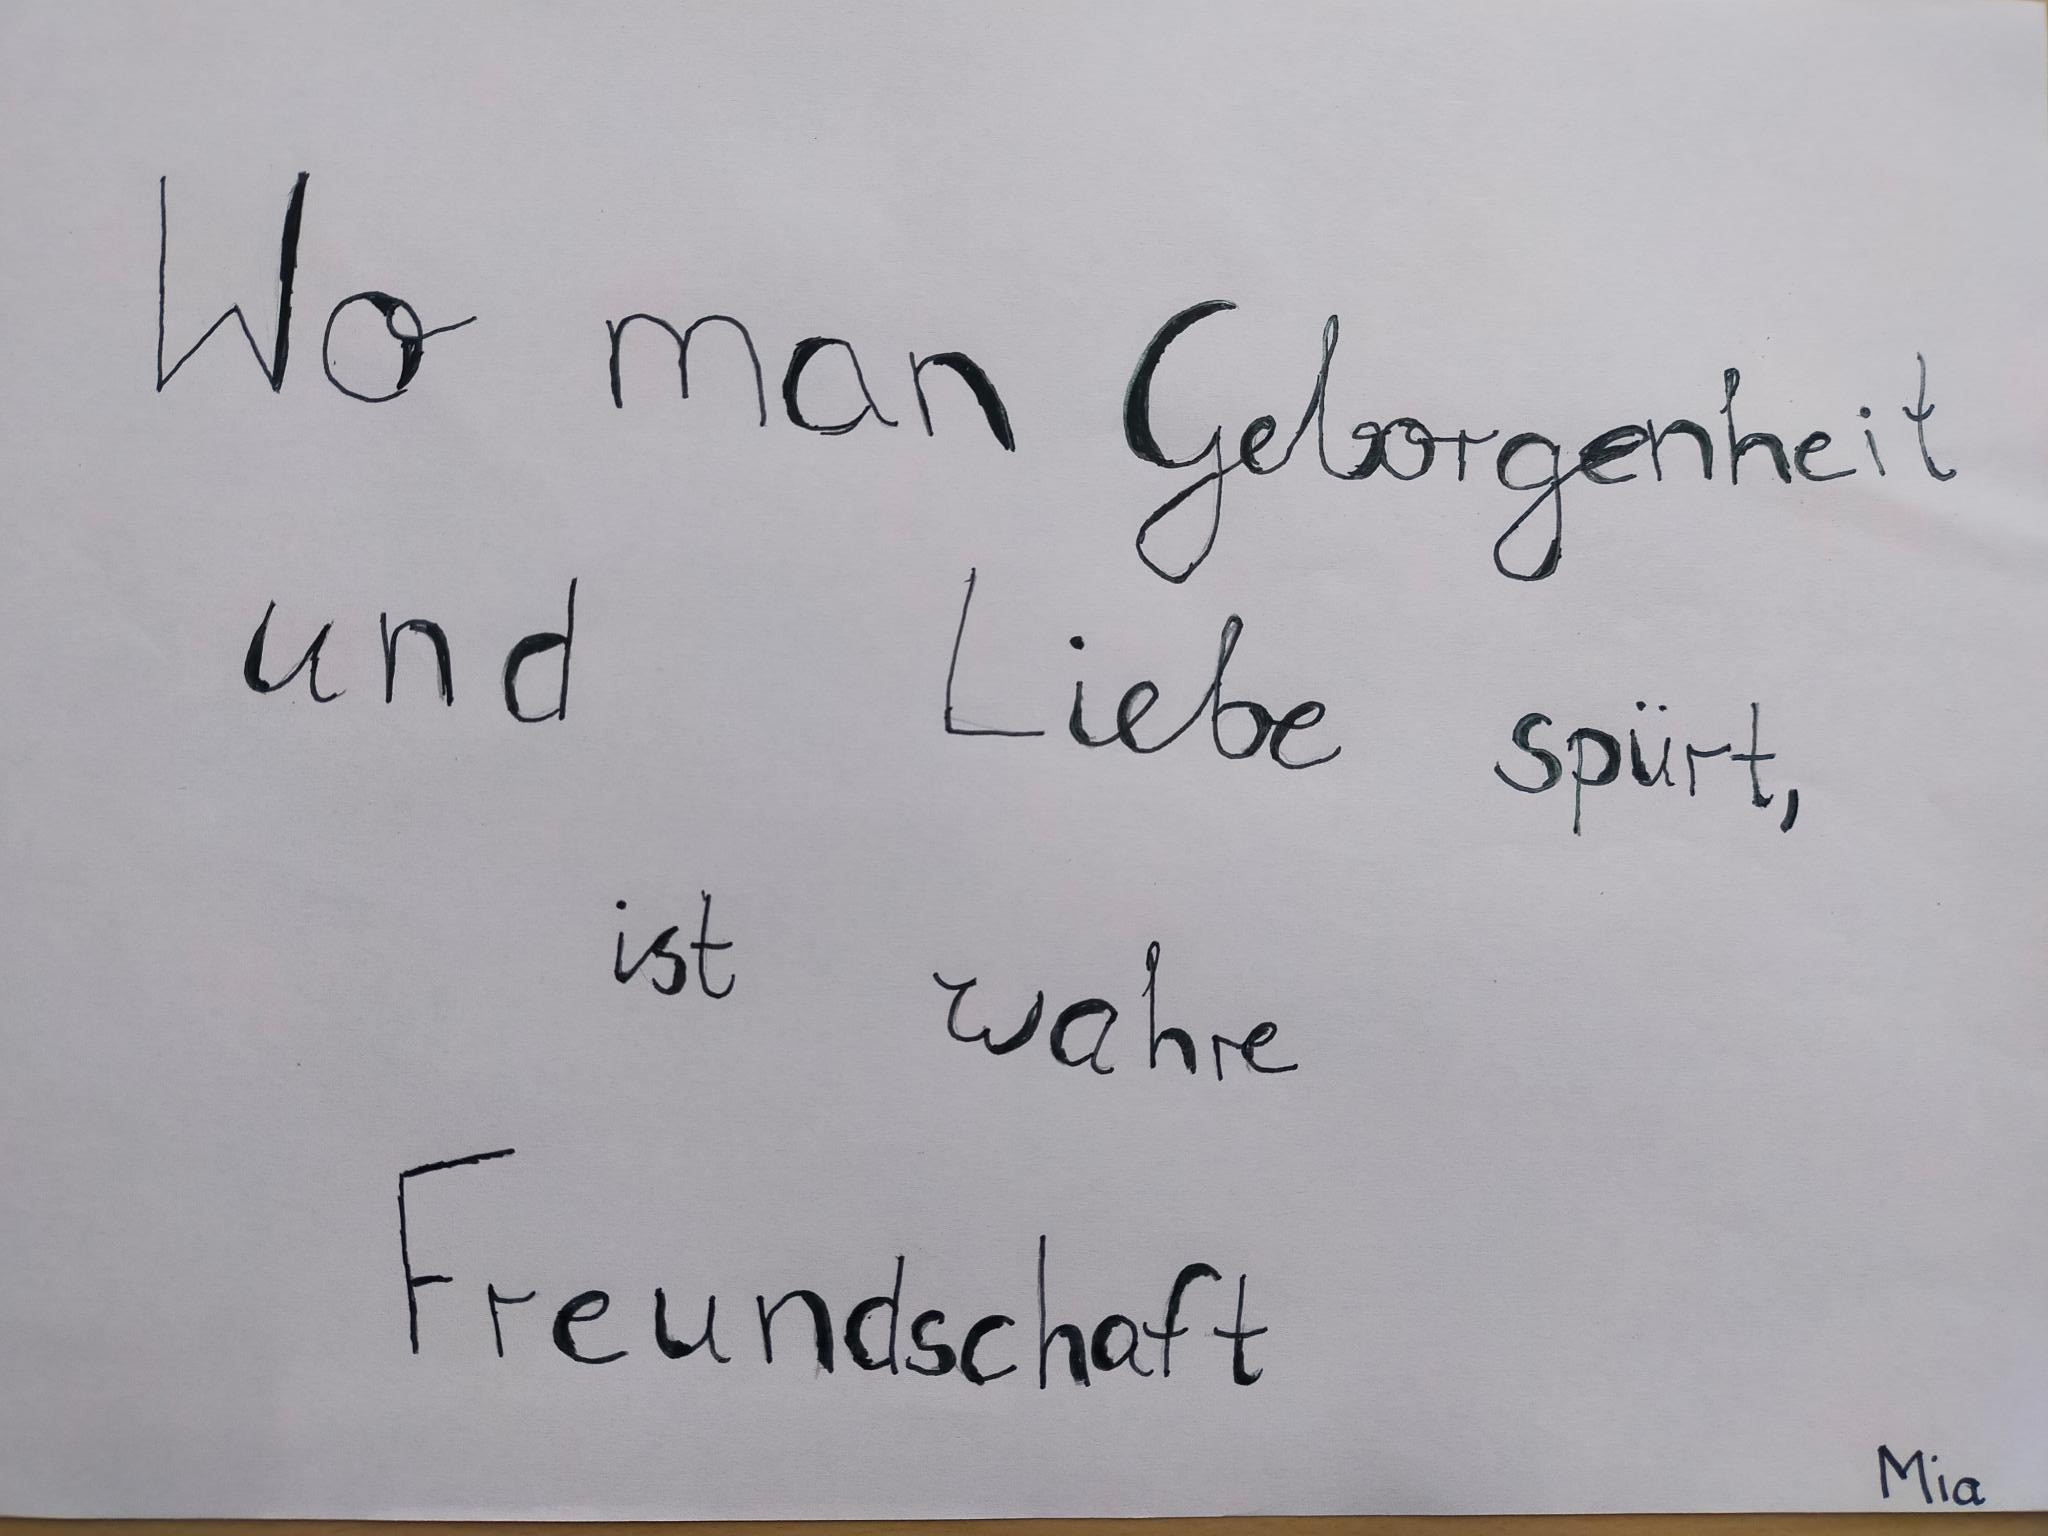 Wo man Geborgenheit
und Liebe spürt,
ist wahre
Freundschaft
Mia